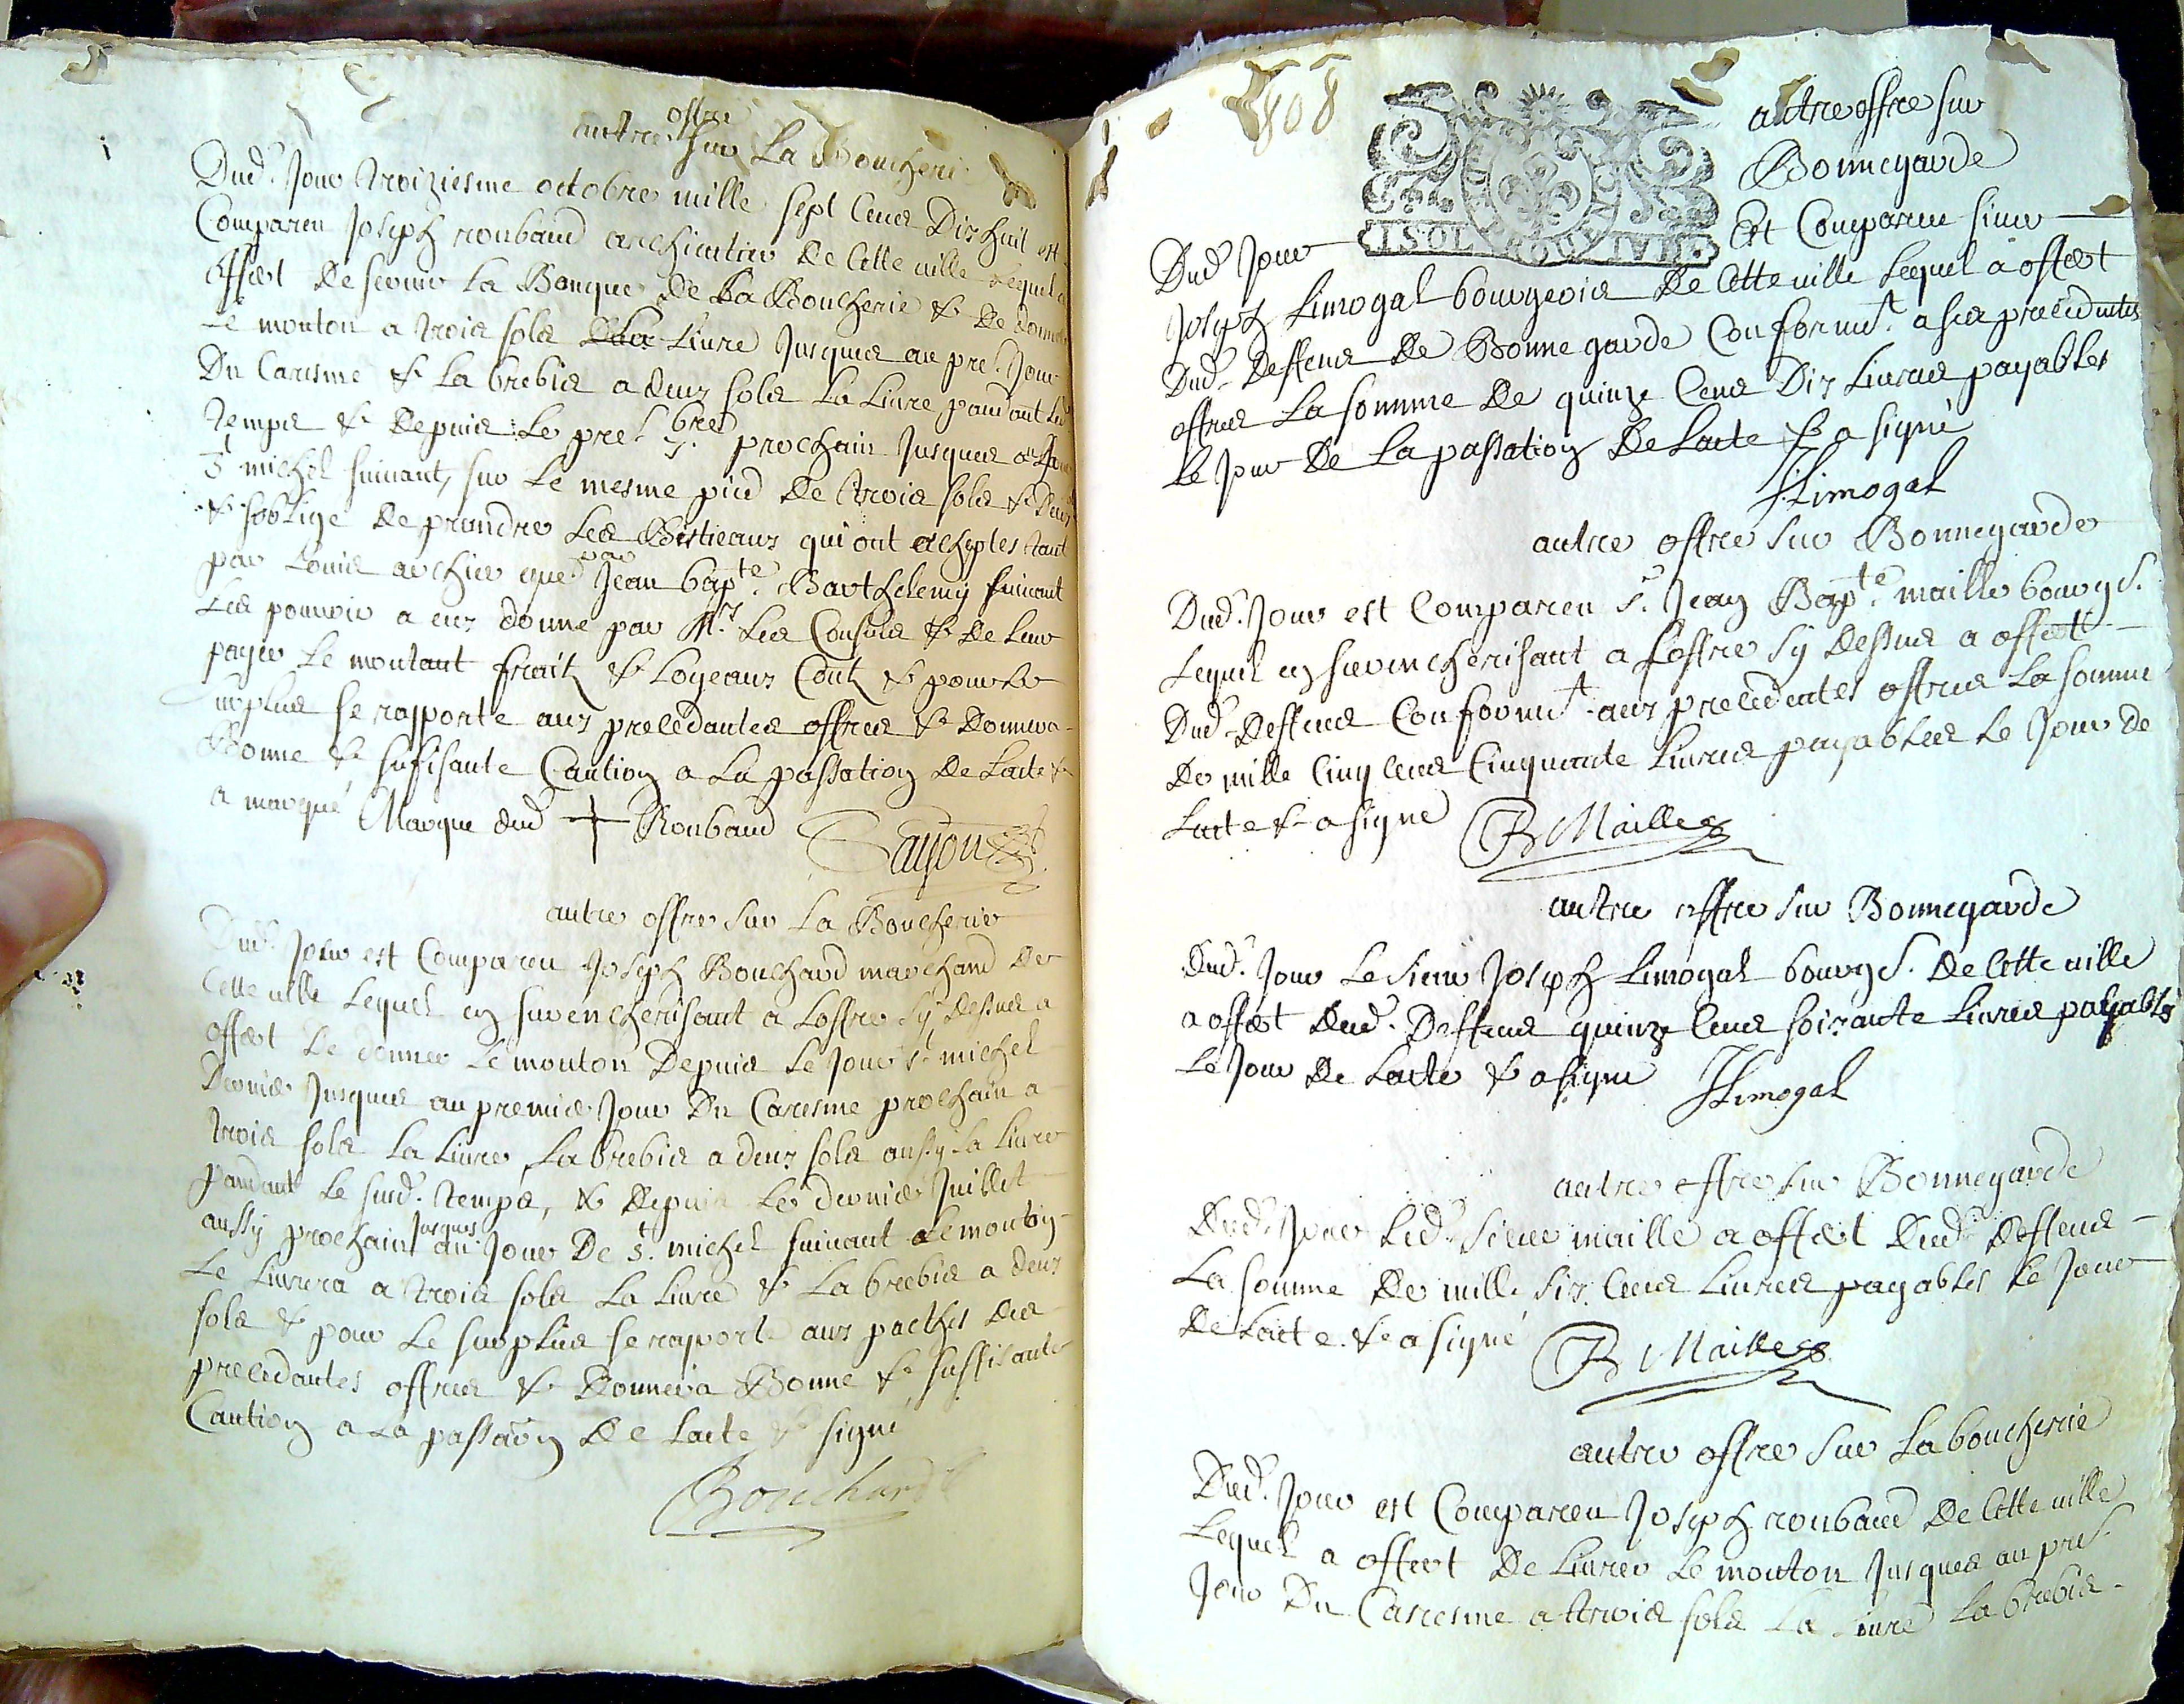 autre offre sur La Boucherie
Dud. Jour troiziesme octobre mille sept Cens Dix huit est
Compareu Joseph roubaud de Cette uille Lequel a
offert De seruir La Banque De La Boucherie & De donner
Le mouton a trois sols La Liure Jusques au pre. Jour
Du Caresme & La brebis a deux sols La Liure pandant Led
temps & Depuis Le pre. prochain Jusques a
St michel suiuant, sur Le mesme pied De trois sols & Deux
& soblige De prandre Les Bestieaux qui ont acheptes tant
par Louis archier que par Jean bapte. Barthelemy suiuant
Les pouuoir a eux donne par Mrs. Les Consuls & De Leur
payer Le montant frait & Loyeaux Cout & pour Le
surplus se rapporte aux precedantes offres & Donnera
Bonne & sufisante Caution a La passation De Lacte &
a marqué Marque dud + Roubaud
autre offre sur La Boucherie
Dud. Jour est Compareu Joseph Bouchard marchand De
Cette uille Lequel en surencherisant a Loffre sy Dessus a
offert De donner Le mouton Depuis Le Jour st michel
Dernier Jusques au premier Jour Du Caresme prochain a
trois sols La Liure, La brebis a deux sols aussy La Liure
pandant Le susd. temps, & Depuis Le dernier Juillet
aussy prochain Jusques au Jour De St. michel suiuant Le mouton
Le Liurera a trois sols La Liure & La brebis a deux
sols & pour Le surplus se raporte aux pactes des
precedantes offres & Donnera Bonne & suffisante
Caution a La passaon De Lacte & signé
Bouchard
808
autre offre sur
Bonnegarde
Dud Jour Est Compareu sieur
Joseph Limogal bourgeois De Cette uille Lequel a offert
Dud. Deffens De Bonnegarde Conformt. a ses precedentes
offres La somme De quinze Cens Dix Liures payables
Le Jour De La passation De Lacte & a signé
JLimogal
autre offre sur Bonnegarde
Dud. Jour est Compareu Sr. Jean Bapte. maille bourgs.
Lequel en surencherisant a Loffre sy Dessus a offert
Dud. Deffens Conformt. aux precedentes offres La somme
De mille Cinq Cens Cinquante Liures payables Le Jour de
Lacte & a signe B Maille
autre offre sur Bonnegarde
Dud. Jour Le sieur Joseph Limogal bourgs. De Cette uille
a offert Dud. Deffens quinze Cens soixante Liures payables
Le Jour De Lacte & a signe JLimogal
autre offre sur Bonnegarde
Dud. Jour Led. sieur maille a offert Dud. Deffens
La somme De mille six Cens Liures payables Le Jour
De Lacte & a signé B Maille
autre offre sur La boucherie
Dud. Jour est Compareu Joseph roubaud De Cette uille
Lequel a offert De Liurer Le mouton Jusques au pre.
Jour Du Caresme a trois sols La Liure La brebis